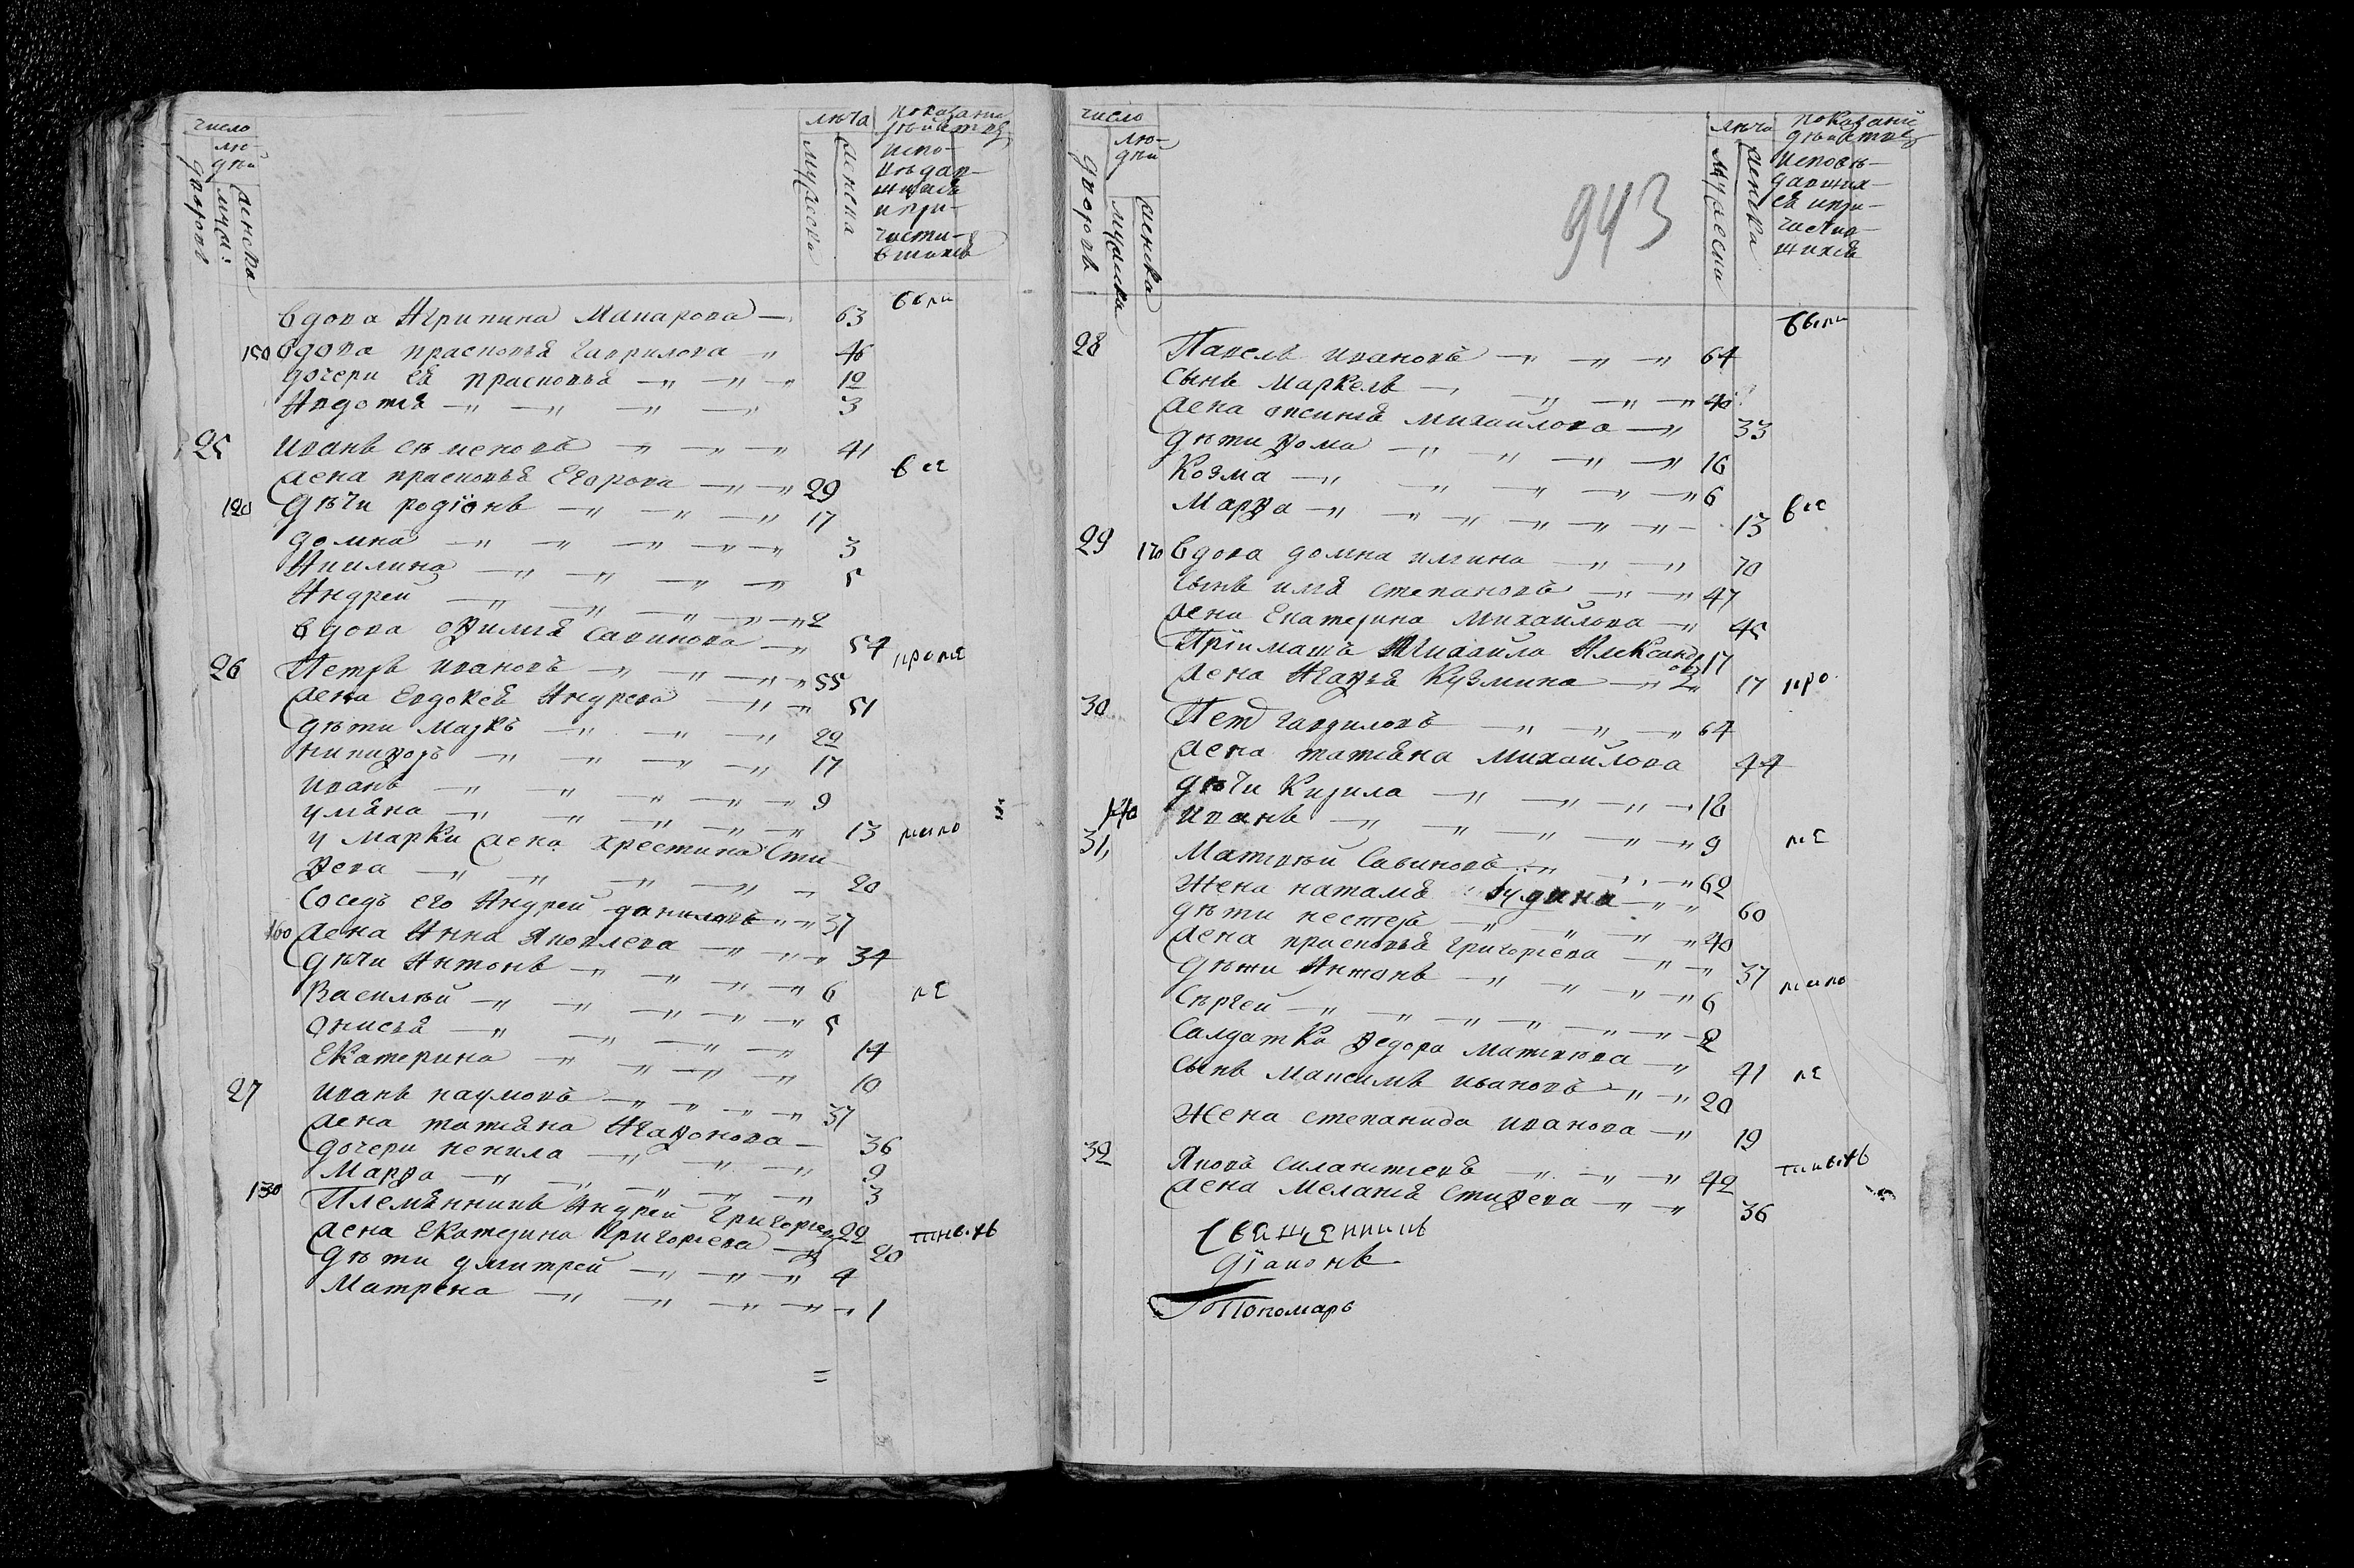 число
лю-
дѣй
дворовъ
муск:
женска
лѣта
мужеска
женска
показание
дѣйства
испо-
вѣдав-
шихся
и при-
части-
вшихся
были
вдова Агрипина Макарова — 63
150 вдова прасковья гаврилова — „ 46
дочери ея прасковья — „ — „ — „ 10
Авдотья — „ — „ — „ — „ 3
25 иванъ семеновъ — „ — „ — „ 41
жена прасковья Егорова — „ — „ 29
все
120 дѣти родіонъ — „ — „ — „ 17
домна — „ — „ — „ — „ — „ 3
Акилина — „ — „ — „ — „ 5
Андрей — „ — „ — „ — „ — „ 2
вдова офимья Савинова — „ 54
проме
26 Петръ ивановъ — „ — „ — „ — „ 55
жена Евдокея Андрева — „ — „ 51
дѣти Маркъ — „ — „ — „ 22
никифоръ — „ — „ — „ — „ 17
иванъ — „ — „ — „ — „ — „ 9
улияна — „ — „ — „ — „ — „ 13
у Марки жена хрестина Сти-
фева — „ — „ — „ — „ — 20
Соседъ его Андрей даниловъ — „ — „ 37
160 жена Анна Яковлева — „ — „ — „ 34
дѣти Антонъ — „ — „ — „ — „ 6
Василей — „ — „ — „ — „ — „ 5
Онисья — „ — „ — „ — „ 14
Екатерина — „ — „ — „ — „ 10
27 иванъ наумовъ — „ — „ — „ — „ 37
жена татияна Агафонова — 36
дочери ненила — „ — „ — „ 9
Марфа — „ — „ — „ — „ — „ 3
130 Племянникъ Андрей Григорьев 22
жена Екатерина Григорьева — „ 20
дѣти дмитрей — „ — „ — „ 4
Матрена — „ — „ — „ — „ — „ 1
число
лю-
дѣй
дворовъ
мужеска
женска
943
лѣта
мужеска
женска
показание
дѣйства
исповѣ-
давших-
ся и при-
частив-
шихся
были
28 Павелъ ивановъ — „ — „ — „ 64
сынъ Маркелъ — „ — „ — „ — „ 40
жена оксинья михайлова — „ 33
дѣти фома — „ — „ — „ — „ 16
Козма — „ — „ — „ — „ — „ 6
Марфа — „ — „ — „ — „ — „ — „ — 13
все
29 170 вдова домна илина — „ — „ 70
сынъ илья степановъ — „ — „ 47
жена Екатерина Михайлова — „ 45
Пріимашъ Михайла Александ
овъ 17
жена Агафья Кузмина — „ 17
про
30 Пет гавриловъ — „ — „ — „ 64
жена татьяна михайлова 44
дѣти Кирила — „ — „ — „ — „ 18
140 иванъ — „ — „ — „ — „ — „ 9
31 Матвѣй Савиновъ — „ — „ 62
Жена наталья — „ — „ 60
дѣти нестеръ — „ — „ — „ — „ 40
жена прасковья григорьева — „ — „ 37
дѣти Антонъ — „ — „ — „ — „ 6
Сергей — „ — „ — „ — „ — „ — „ 2
Салдатка федора Матвѣева — „ 41
сынъ Максимъ ивановъ — „ — „ 20
Жена степанида иванова — „ 19
32 Яковъ силантьевъ — „ — „ — „ 42
жена Меланья Стифева — „ — „ 36
Священникъ
дїаконъ
Пономарь